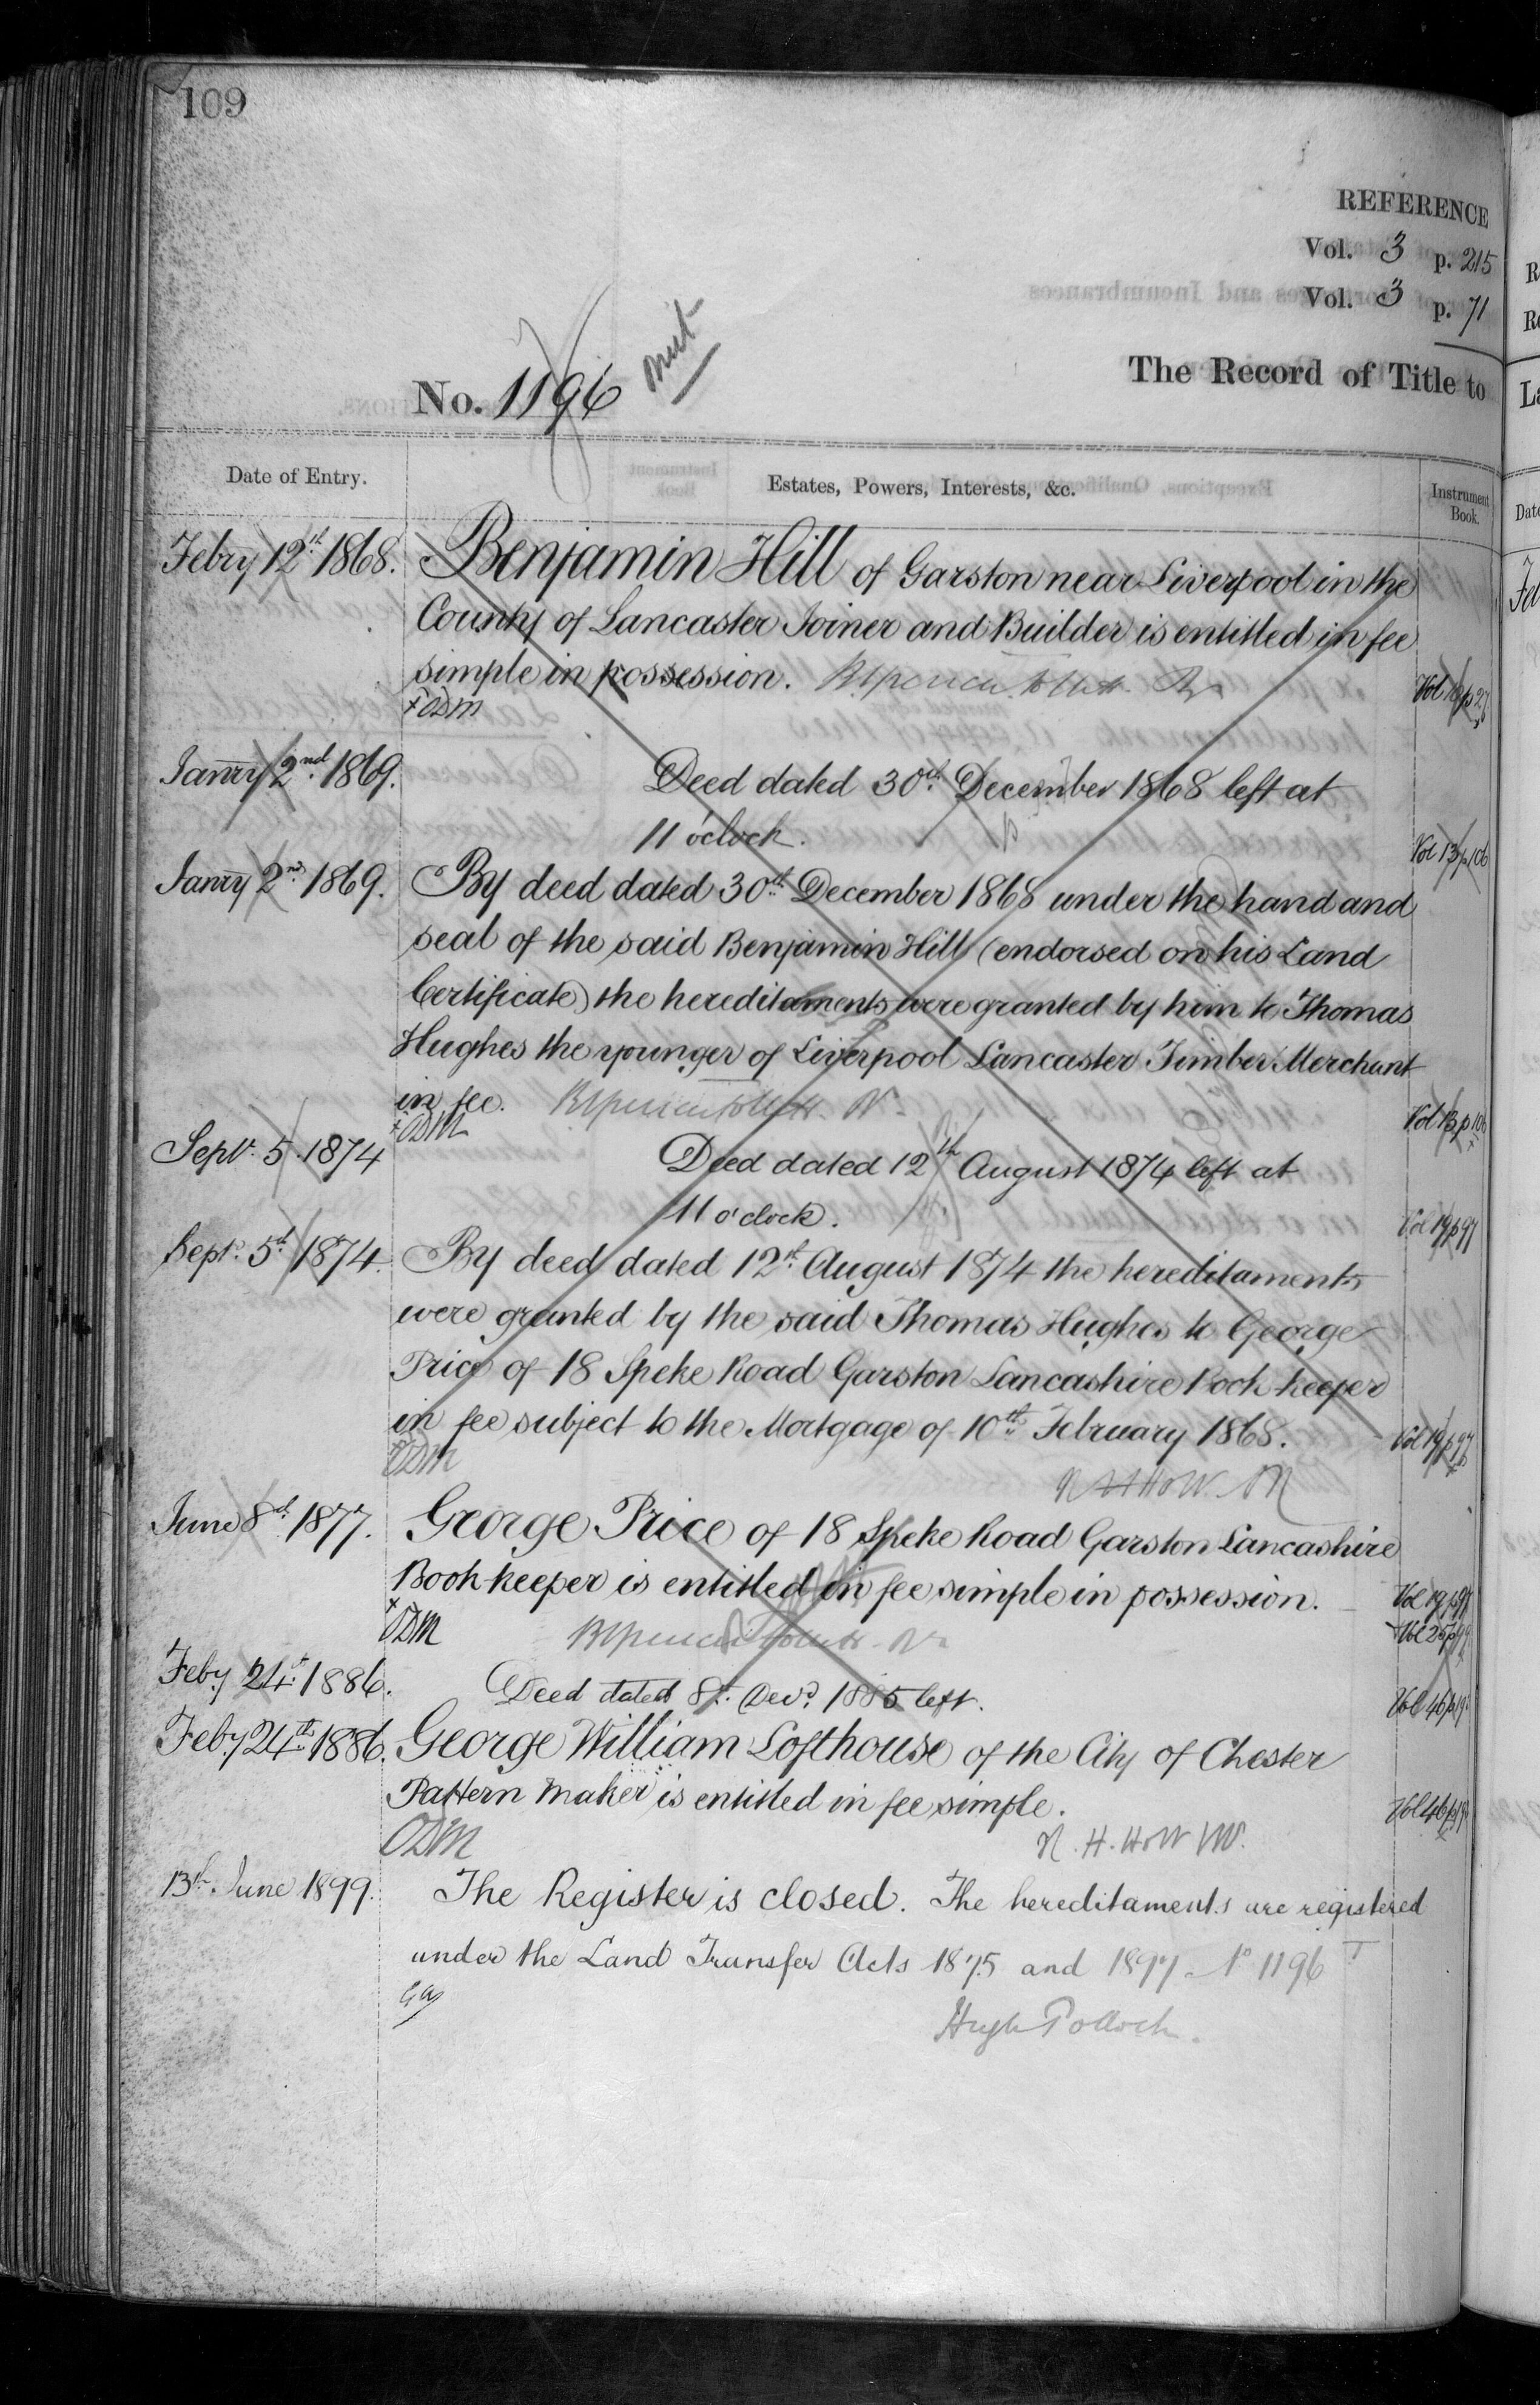 109
REFERENCE
Vol. 3 p. 215
Vol. 3 p. 71
No. 1196
The Record of Title to
Date of Entry.
Estates, Powers, Interests, &c.
Instrument Book.
Febry 12th 1868. Benjamin Hill of Garston near Liverpool in the
County of Lancaster Joiner and Builder is entitled in fee
simple in possession.
ODM
Janry 2nd 1869. Deed dated 30th December 1868 left at
11 o'clock. Vol 13 p 106
Janry 2nd 1869. By deed dated 30th December 1868 under the hand and
seal of the said Benjamin Hill (endorsed on his Land
Certificate) the hereditaments were granted by him to Thomas
Hughes the younger of Liverpool Lancaster Timber Merchant
in fee. Vol 13 p 106
ODM
Septr. 5. 1874 Deed dated 12th August 1874 left at
11 o'clock. Vol 19 p 97
Septr. 5th 1874. By deed dated 12th August 1874 the hereditaments
were granted by the said Thomas Hughes to George
Price of 18 Speke Road Garston Lancashire Book keeper
in fee subject to the Mortgage of 10th February 1868. Vol 19 p 97
ODM
June 8th 1877. George Price of 18 Speke Road Garston Lancashire
Book keeper is entitled in fee simple in possession. Vol 19 p 97
ODM
Feby 24th 1886. Deed dated 8th Decr 1885 left.
Feby 24th 1886. George William Lofthouse of the City of Chester
Pattern Maker is entitled in fee simple.
ODM
R. H. Holt
13th June 1899. The Register is closed. The hereditaments are registered
under the Land Transfer Acts 1875 and 1897 No 1196
Hugh Pollock.